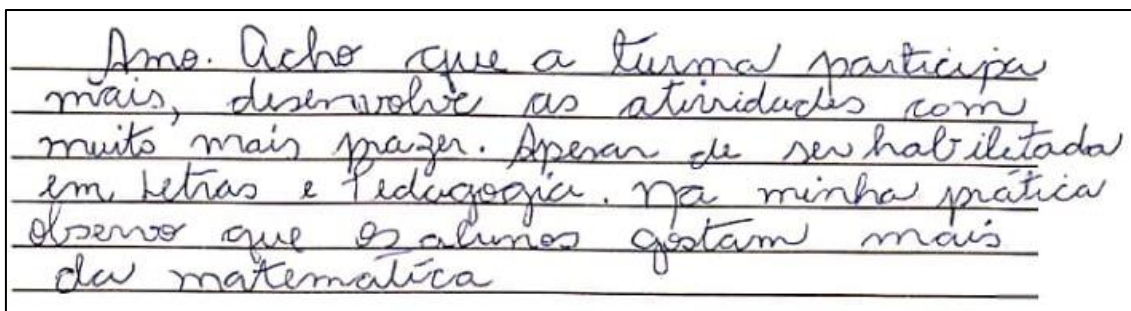 Amo. Acho que a turma participa
mais, desenvolve as atividades com
muito mais prazer. Apesar de ser habilitada
em Letras e Pedagogia. Na minha prática
observo que os alunos gostam mais
da matemática